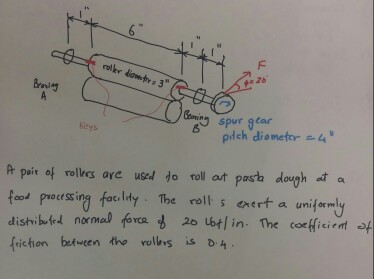 1" 6" 1" 1"
roller diameter = 3"
F
φ=20°
Bearing
A
Keys
Bearing
B
spur gear
pitch diameter = 4"
A pair of rollers are used to roll out pasta dough at a
food processing facility. The roll's exert a uniformly
distributed normal force of 20 Lbf/in. The coefficient of
friction between the rollers is 0.4.